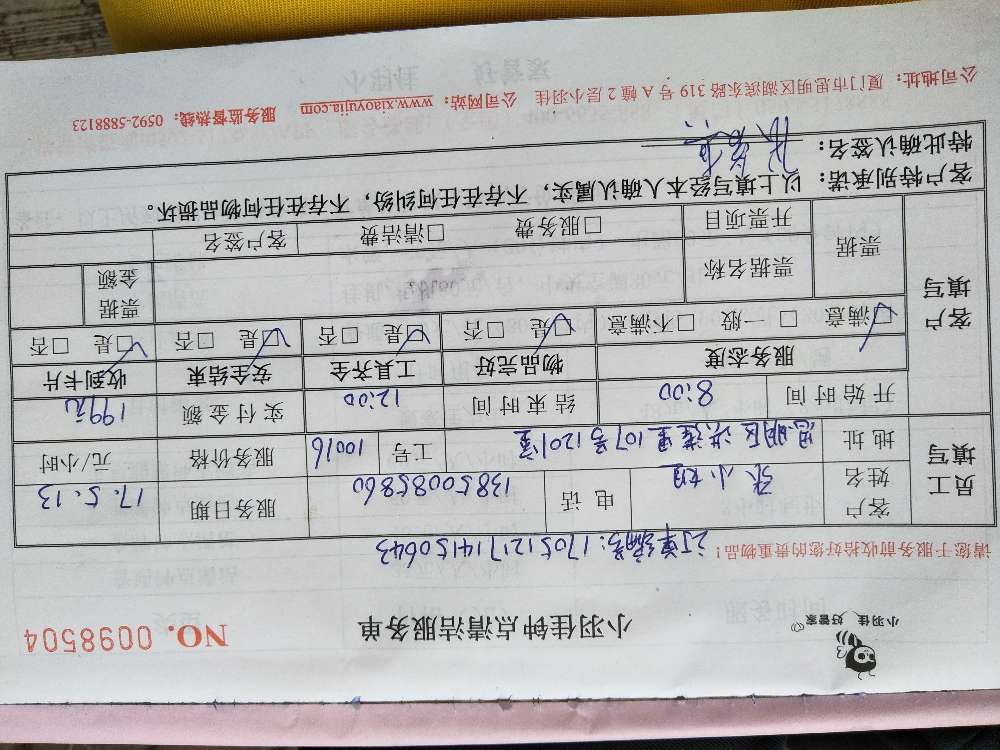 小羽佳 好管家
小羽佳钟点清洁服务单
NO. 0098504
请您于服务前收拾好您的贵重物品！
订单编号：17051217141506 43
员工填写
客户姓名 张小姐 电话 13850085860 服务日期 17.5.13
地址 思明区洪莲里107号1201室 工号 10016 服务价格 元/小时
开始时间 8:00 结束时间 12:00 实付金额 199元
客户填写
服务态度 物品完好 工具齐全 安全结束 收到卡片
☑满意 □一般 □不满意 ☑是 □否 ☑是 □否 ☑是 □否 ☑是 □否
票据 票据名称 票据金额
开票项目 □服务费 □清洁费 客户签名
客户特别承诺：以上填写经本人确认属实，不存在任何纠纷，不存在任何物品损坏。
特此确认签名：
公司地址：厦门市思明区湖滨东路 319 号 A 幢 2 层小羽佳 公司网站：www.xiaoyujia.com 服务监督热线：0592-5888123